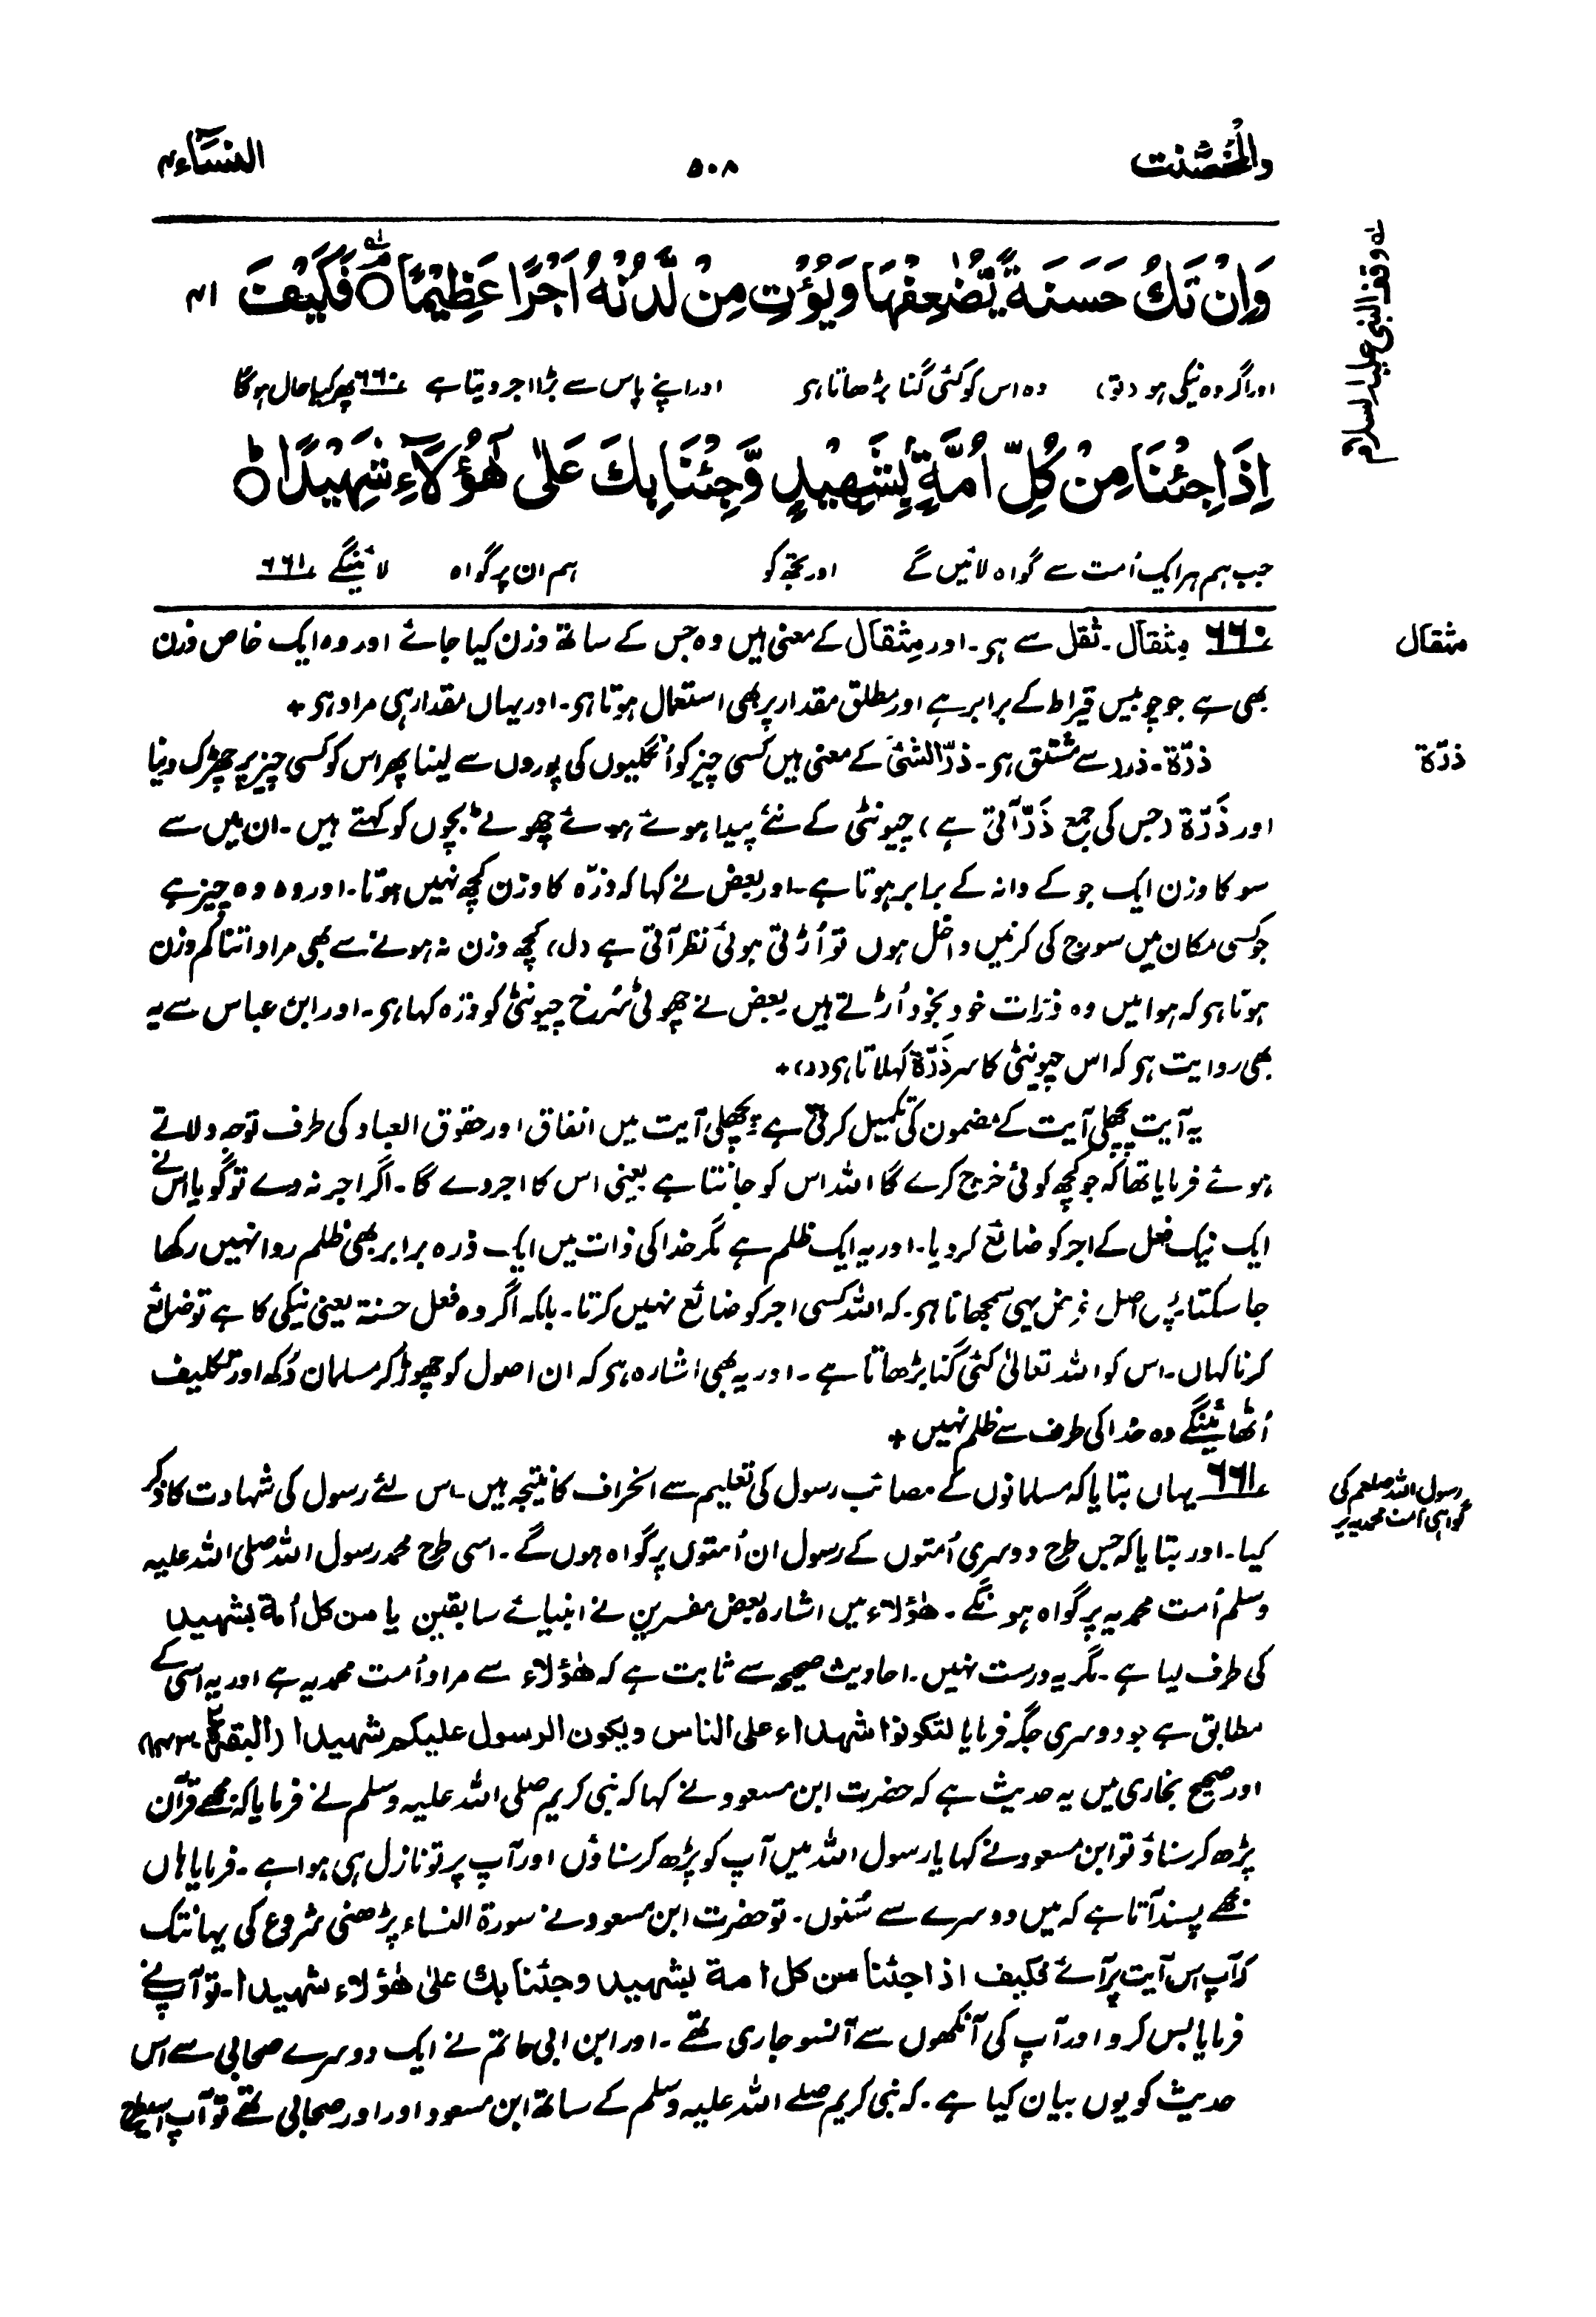 والمحصنت
۵۰۸
النساء ۴
وَاِنْ تَكُ حَسَنَةً يُّضٰعِفْهَا وَيُؤْتِ مِنْ لَّدُنْهُ اَجْرًا عَظِيْمًا ۞ فَكَيْفَ ۴۱
اور اگر وہ نیکی ہو (تو) وہ اس کو کئی گنا بڑھاتا ہی اور اپنے پاس سے بڑا اجر دیتا ہے ۶۶۰ پھر کیا حال ہو گا
اِذَا جِئْنَا مِنْ كُلِّ اُمَّةٍۭ بِشَهِيْدٍ وَّجِئْنَا بِكَ عَلٰى هٰٓؤُلَآءِ شَهِيْدًا ؕ
جب ہم ہر ایک اُمت سے گواہ لائیں گے اور تجھ کو ہم ان پر گواہ لائینگے ۶۶۱
وقف النبی علیہ السلام
مثقال
۶۶۰ مِثقال۔ ثقل سے ہی۔ اور مِثقال کے معنی ہیں وہ جس کے ساتھ وزن کیا جائے اور وہ ایک خاص وزن
بھی ہے جو چوبیس قیراط کے برابر ہے اور مطلق مقدار پر بھی استعمال ہوتا ہی۔ اور یہاں مقدار ہی مراد ہی +
ذرّة
ذرّة۔ ذرر سے مشتق ہی۔ ذرّ الشئ کے معنی ہیں کسی چیز کو اُنگلیوں کی پوروں سے لینا پھر اس کو کسی چیز پر چھڑک دینا
اور ذَرّة (جس کی جمع ذَرّ آتی ہے) چیونٹی کے نئے پیدا ہوئے ہوئے چھوٹے بچوں کو کہتے ہیں۔ ان میں سے
سو کا وزن ایک جو کے دانہ کے برابر ہوتا ہے۔ اور بعض نے کہا کہ ذرّہ کا وزن کچھ نہیں ہوتا۔ اور وہ وہ چیز ہے
جو کسی مکان میں سورج کی کرنیں داخل ہوں تو اُڑتی ہوئی نظر آتی ہے (ل) کچھ وزن نہ ہونے سے بھی مراد اتنا کم وزن
ہوتا ہی کہ ہوا میں وہ ذرّات خود بخود اُڑتے ہیں بعض نے چھوٹی سُرخ چیونٹی کو ذرّہ کہا ہی۔ اور ابن عباس سے یہ
بھی روایت ہی کہ اس چیونٹی کا سر ذَرّة کہلاتا ہی (ر) +
یہ آیت پچھلی آیت کے مضمون کی تکمیل کرتی ہے پچھلی آیت میں انفاق اور حقوق العباد کی طرف توجہ دلاتے
ہوئے فرمایا تھا کہ جو کچھ کوئی خرچ کرے گا اللہ اس کو جانتا ہے یعنی اس کا اجر دے گا۔ اگر اجر نہ دے تو گویا اس نے
ایک نیک فعل کے اجر کو ضائع کر دیا۔ اور یہ ایک ظلم ہے مگر خدا کی ذات میں ایک ذرہ برابر بھی ظلم روا نہیں رکھا
جا سکتا پس اصل غرض یہی سمجھانا ہی۔ کہ اللہ کسی اجر کو ضائع نہیں کرتا۔ بلکہ اگر وہ فعل حسنة یعنی نیکی کا ہے تو ضائع
کرنا کہاں۔ اس کو اللہ تعالیٰ کئی گنا بڑھاتا ہے۔ اور یہ بھی اشارہ ہی کہ ان اصول کو چھوڑ کر مسلمان دُکھ اور تکلیف
اُٹھائینگے وہ خدا کی طرف سے ظلم نہیں +
رسول اللہ صلعم کی
گواہی اُمت محمدیہ پر
۶۶۱ یہاں بتایا کہ مسلمانوں کے مصائب رسول کی تعلیم سے انحراف کا نتیجہ ہیں۔ اس لئے رسول کی شہادت کا ذکر
کیا۔ اور بتایا کہ جس طرح دوسری اُمتوں کے رسول ان اُمتوں پر گواہ ہوں گے۔ اسی طرح محمد رسول اللہ صلی اللہ علیہ
وسلم اُمت محمدیہ پر گواہ ہونگے۔ هٰؤلاء میں اشارہ بعض مفسرین نے انبیائے سابقین یا من کل اُمة بشهيد
کی طرف لیا ہے۔ مگر یہ درست نہیں۔ احادیث صحیحہ سے ثابت ہے کہ هٰؤلاء سے مراد اُمت محمدیہ ہے اور یہ اسی کے
مطابق ہے جو دوسری جگہ فرمایا لتكونوا شهداء على الناس ويكون الرسول عليكم شهيدا (البقرة ۱۴۳)
اور صحیح بخاری میں یہ حدیث ہے کہ حضرت ابن مسعود نے کہا کہ نبی کریم صلی اللہ علیہ وسلم نے فرمایا کہ مجھے قرآن
پڑھ کر سناؤ تو ابن مسعود نے کہا یا رسول اللہ میں آپ کو پڑھ کر سناؤں اور آپ پر تو نازل ہی ہوا ہے۔ فرمایا ہاں
مجھے پسند آتا ہے کہ میں دوسرے سے سُنوں۔ تو حضرت ابن مسعود نے سورة النساء پڑھنی شروع کی یہانتک
کہ آپ اس آیت پر آئے فکیف اذا جئنا من كل امة بشهيد وجئنا بك على هٰؤلاء شهيدا۔ تو آپ نے
فرمایا بس کرو اور آپ کی آنکھوں سے آنسو جاری تھے۔ اور ابن ابی حاتم نے ایک دوسرے صحابی سے اس
حدیث کو یوں بیان کیا ہے۔ کہ نبی کریم صلے اللہ علیہ وسلم کے ساتھ ابن مسعود اور اور صحابی تھے تو آپ اسیطرح